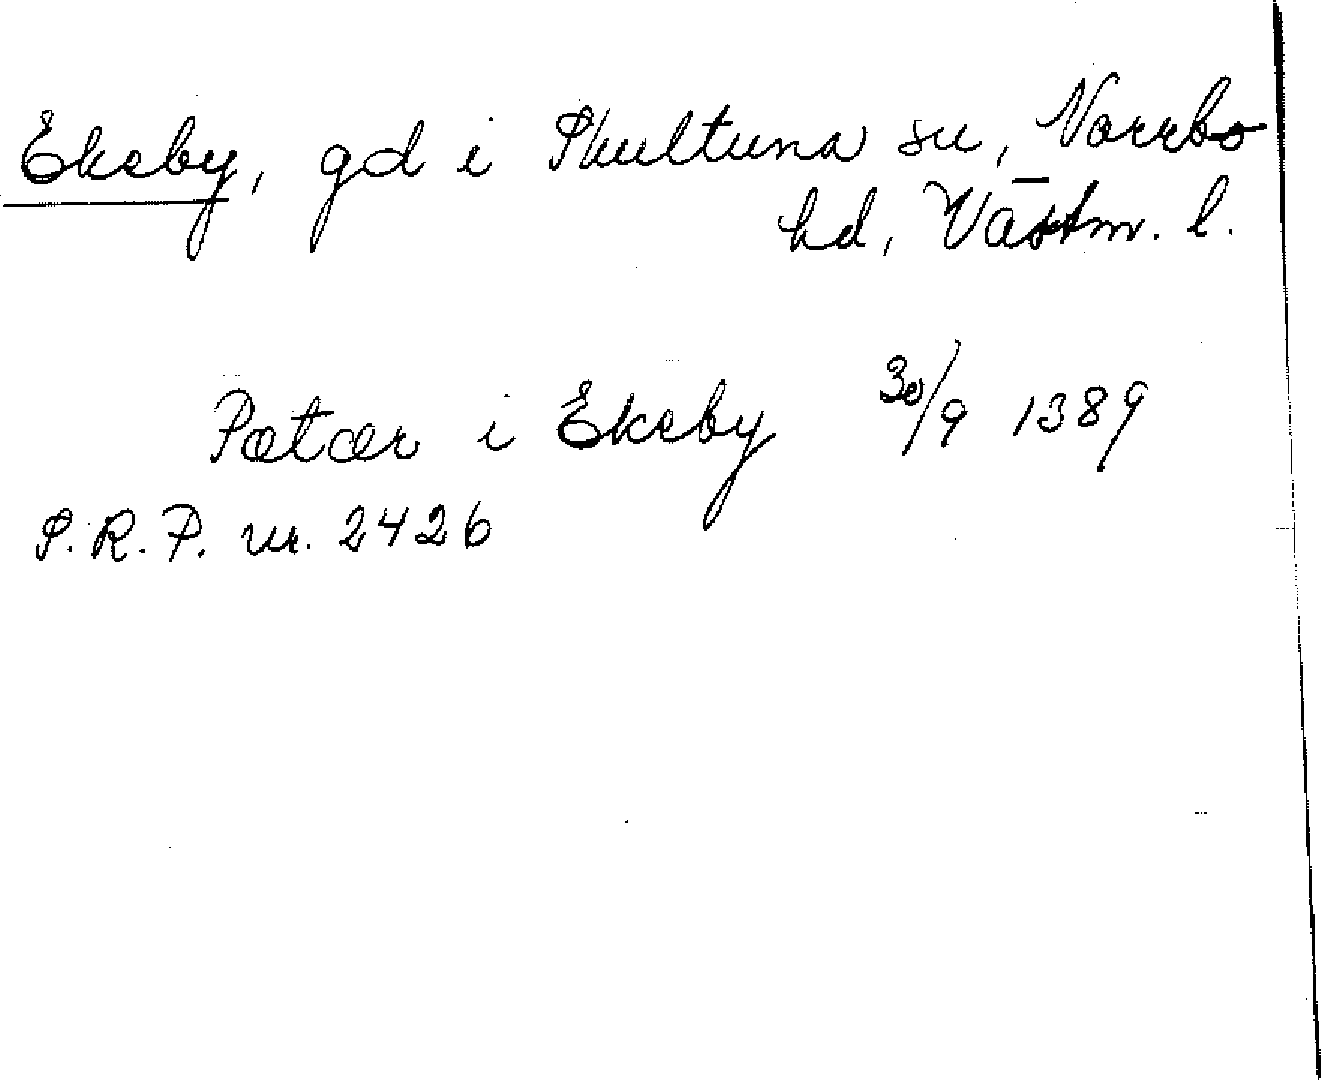 Ekeby, gd i Skultuna sn, Norrbo
hd, Västm. l.
Pætær i Ekeby 30/9 1389
S.R.P. nr. 2426